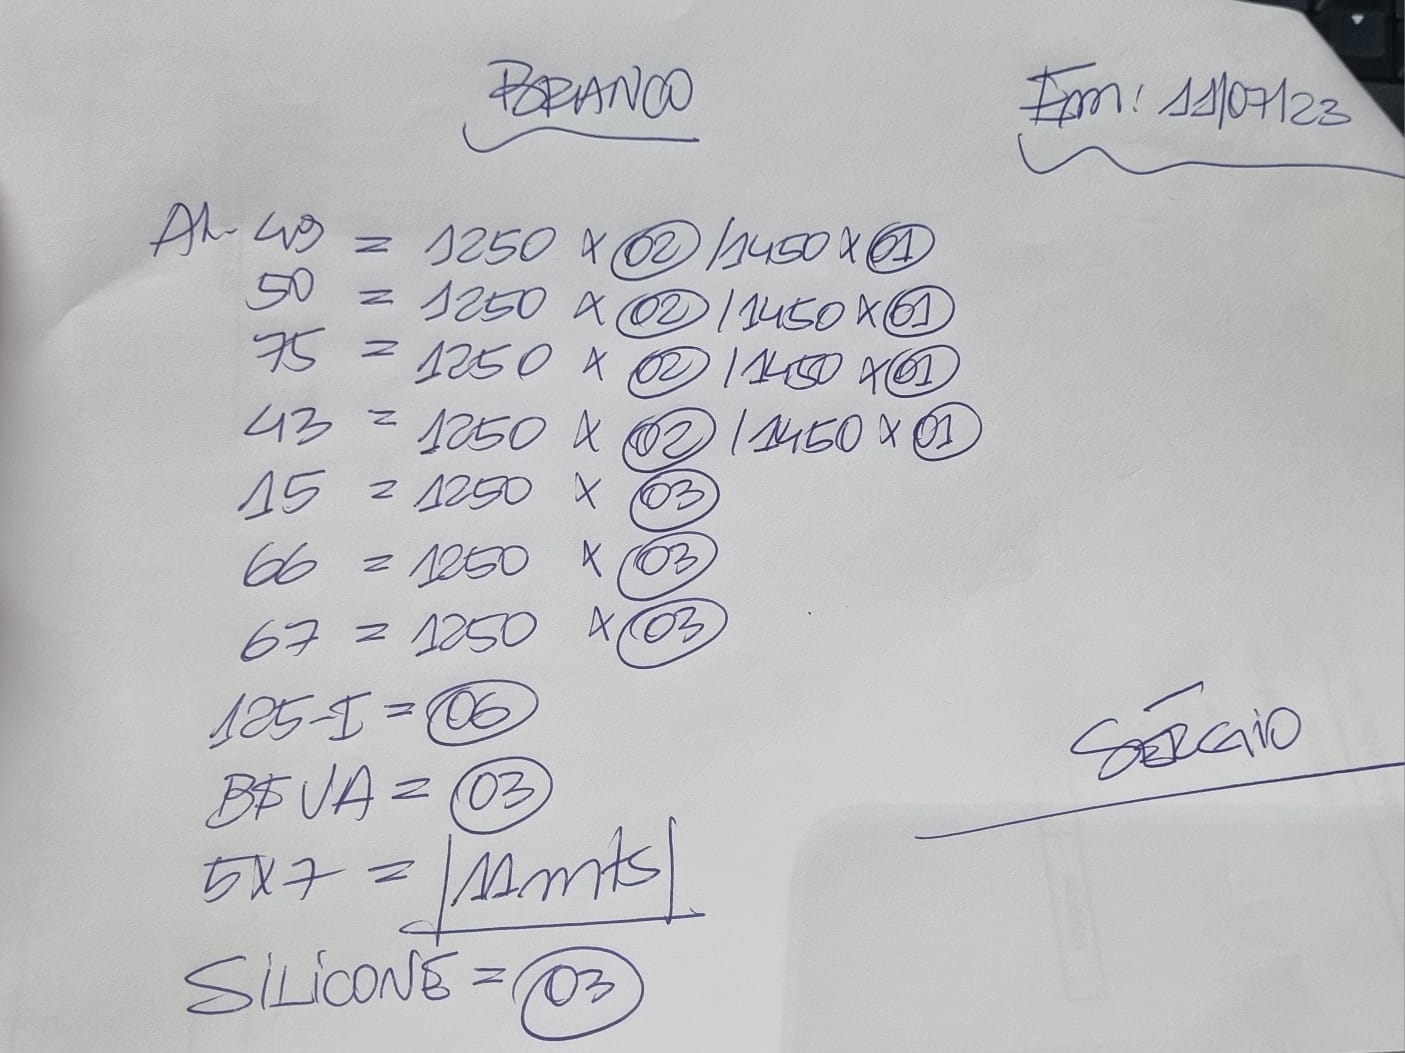 BRANCO
Em: 11/07/23
AL- 49 = 1250 x 02 / 1450 x 01
50 = 1250 x 02 / 1450 x 01
75 = 1250 x 02 / 1450 x 01
43 = 1250 x 02 / 1450 x 01
15 = 1250 x 03
66 = 1250 x 03
67 = 1250 x 03
125-I = 06
B$ VA = 03
5x7 = |11mts|
SILICONE = 03
SÉRGIO